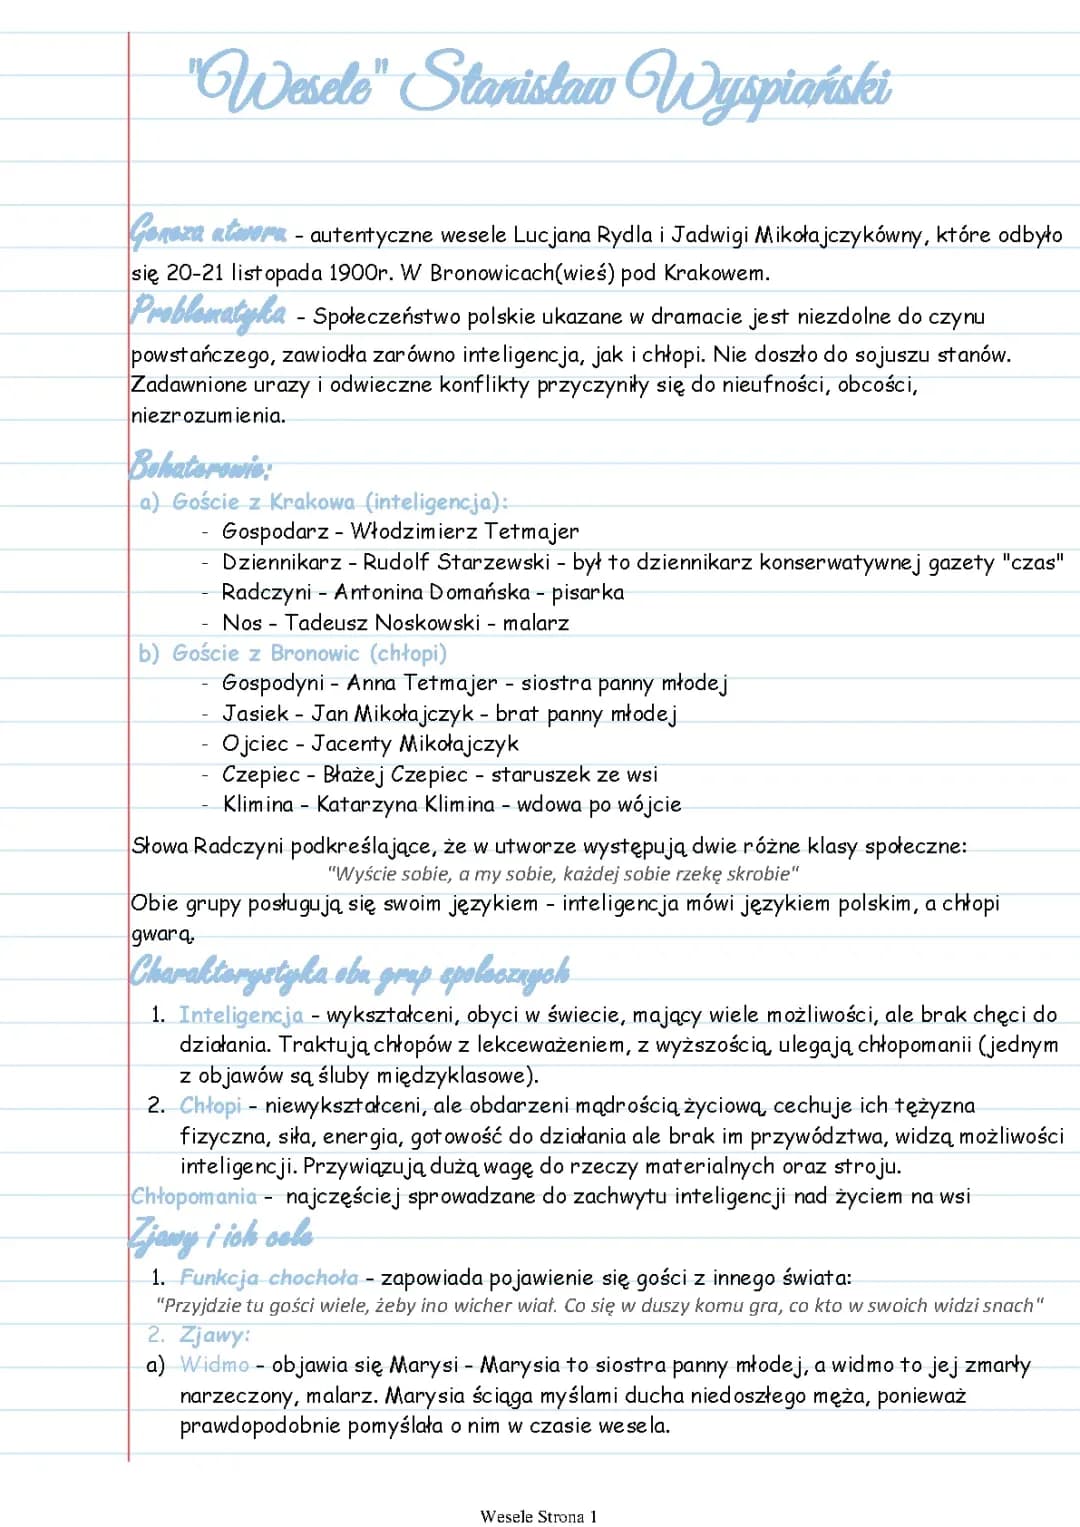 "Wesele" Stanisław Wyspiański
Geneza utworu - autentyczne wesele Lucjana Rydla i Jadwigi Mikołajczykówny, które odbyło
się 20-21 listopada 1900r. W Bronowicach(wieś) pod Krakowem.
Problematyka - Społeczeństwo polskie ukazane w dramacie jest niezdolne do czynu
powstańczego, zawiodła zarówno inteligencja, jak i chłopi. Nie doszło do sojuszu stanów.
Zadawnione urazy i odwieczne konflikty przyczyniły się do nieufności, obcości,
niezrozumienia.
Bohaterowie:
a) Goście z Krakowa (inteligencja):
- Gospodarz - Włodzimierz Tetmajer
- Dziennikarz - Rudolf Starzewski - był to dziennikarz konserwatywnej gazety "czas"
- Radczyni - Antonina Domańska - pisarka
- Nos - Tadeusz Noskowski - malarz
b) Goście z Bronowic (chłopi)
- Gospodyni - Anna Tetmajer - siostra panny młodej
- Jasiek - Jan Mikołajczyk - brat panny młodej
- Ojciec - Jacenty Mikołajczyk
- Czepiec - Błażej Czepiec - staruszek ze wsi
- Klimina - Katarzyna Klimina - wdowa po wójcie
Słowa Radczyni podkreślające, że w utworze występują dwie różne klasy społeczne:
"Wyście sobie, a my sobie, każdej sobie rzekę skrobie"
Obie grupy posługują się swoim językiem - inteligencja mówi językiem polskim, a chłopi
gwarą.
Charakterystyka obu grup społecznych
1. Inteligencja - wykształceni, obyci w świecie, mający wiele możliwości, ale brak chęci do
działania. Traktują chłopów z lekceważeniem, z wyższością, ulegają chłopomanii (jednym
z objawów są śluby międzyklasowe).
2. Chłopi - niewykształceni, ale obdarzeni mądrością życiową, cechuje ich tężyzna
fizyczna, siła, energia, gotowość do działania ale brak im przywództwa, widzą możliwości
inteligencji. Przywiązują dużą wagę do rzeczy materialnych oraz stroju.
Chłopomania - najczęściej sprowadzane do zachwytu inteligencji nad życiem na wsi
Zjawy i ich cele
1. Funkcja chochoła - zapowiada pojawienie się gości z innego świata:
"Przyjdzie tu gości wiele, żeby ino wicher wiał. Co się w duszy komu gra, co kto w swoich widzi snach"
2. Zjawy:
a) Widmo - objawia się Marysi - Marysia to siostra panny młodej, a widmo to jej zmarły
narzeczony, malarz. Marysia ściąga myślami ducha niedoszłego męża, ponieważ
prawdopodobnie pomyślała o nim w czasie wesela.
Wesele Strona 1